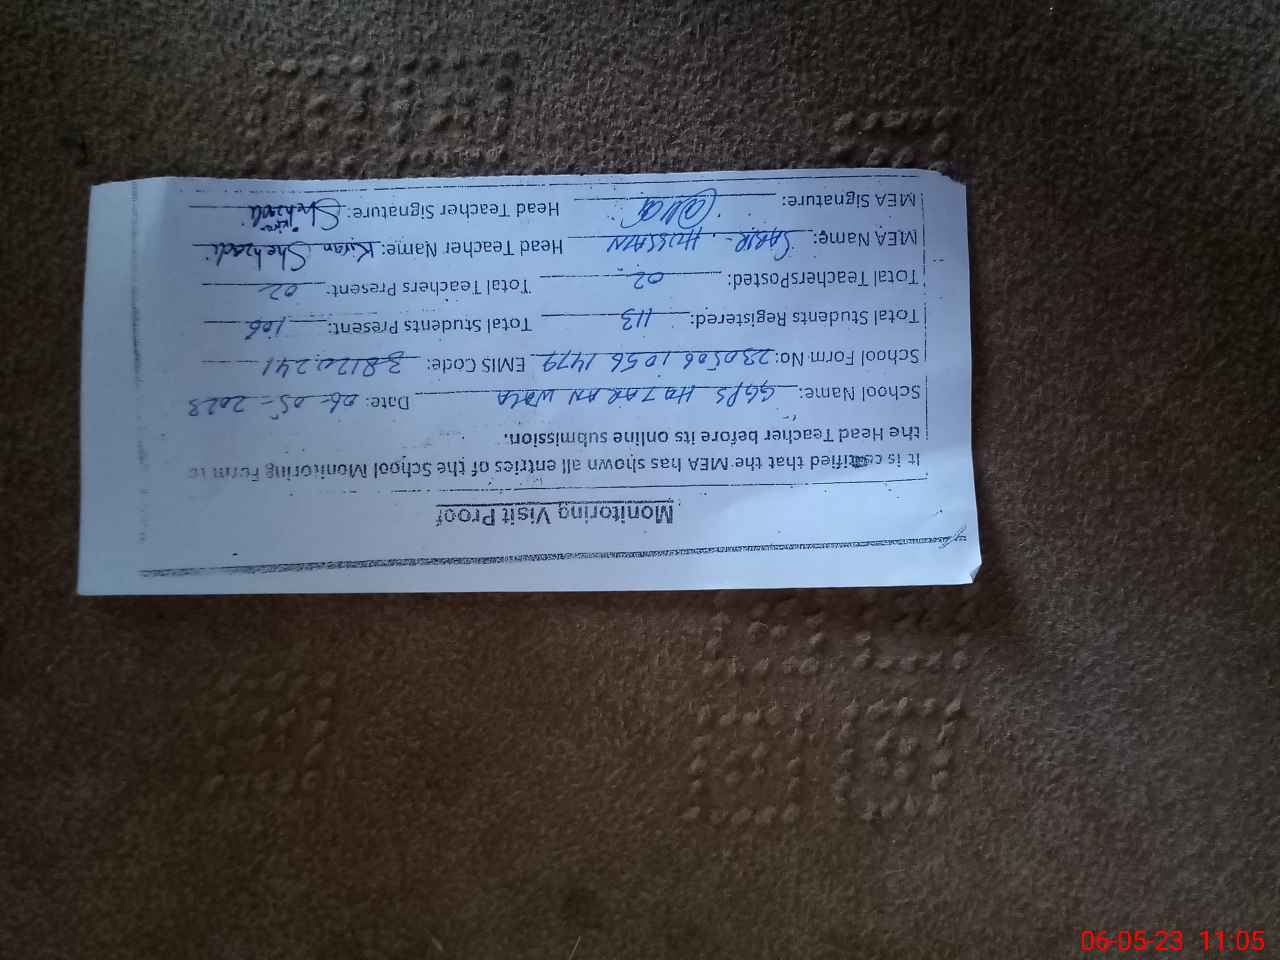 Monitoring Visit Proof
It is certified that the MEA has shown all entries of the School Monitoring Form to
the Head Teacher before its online submission.
School Name: GGPS HATARAN WALA Date: 06-05-2023
School Form No: 230506 1056 1477 EMIS Code: 38120241
Total Students Registered: 113 Total Students Present: 106
Total TeachersPosted: 02 Total Teachers Present: 02
MEA Name: SABIR HUSSAIN Head Teacher Name: Kiran Shehzadi
MEA Signature: Head Teacher Signature: Kiran Shehzadi
06-05-23 11:05